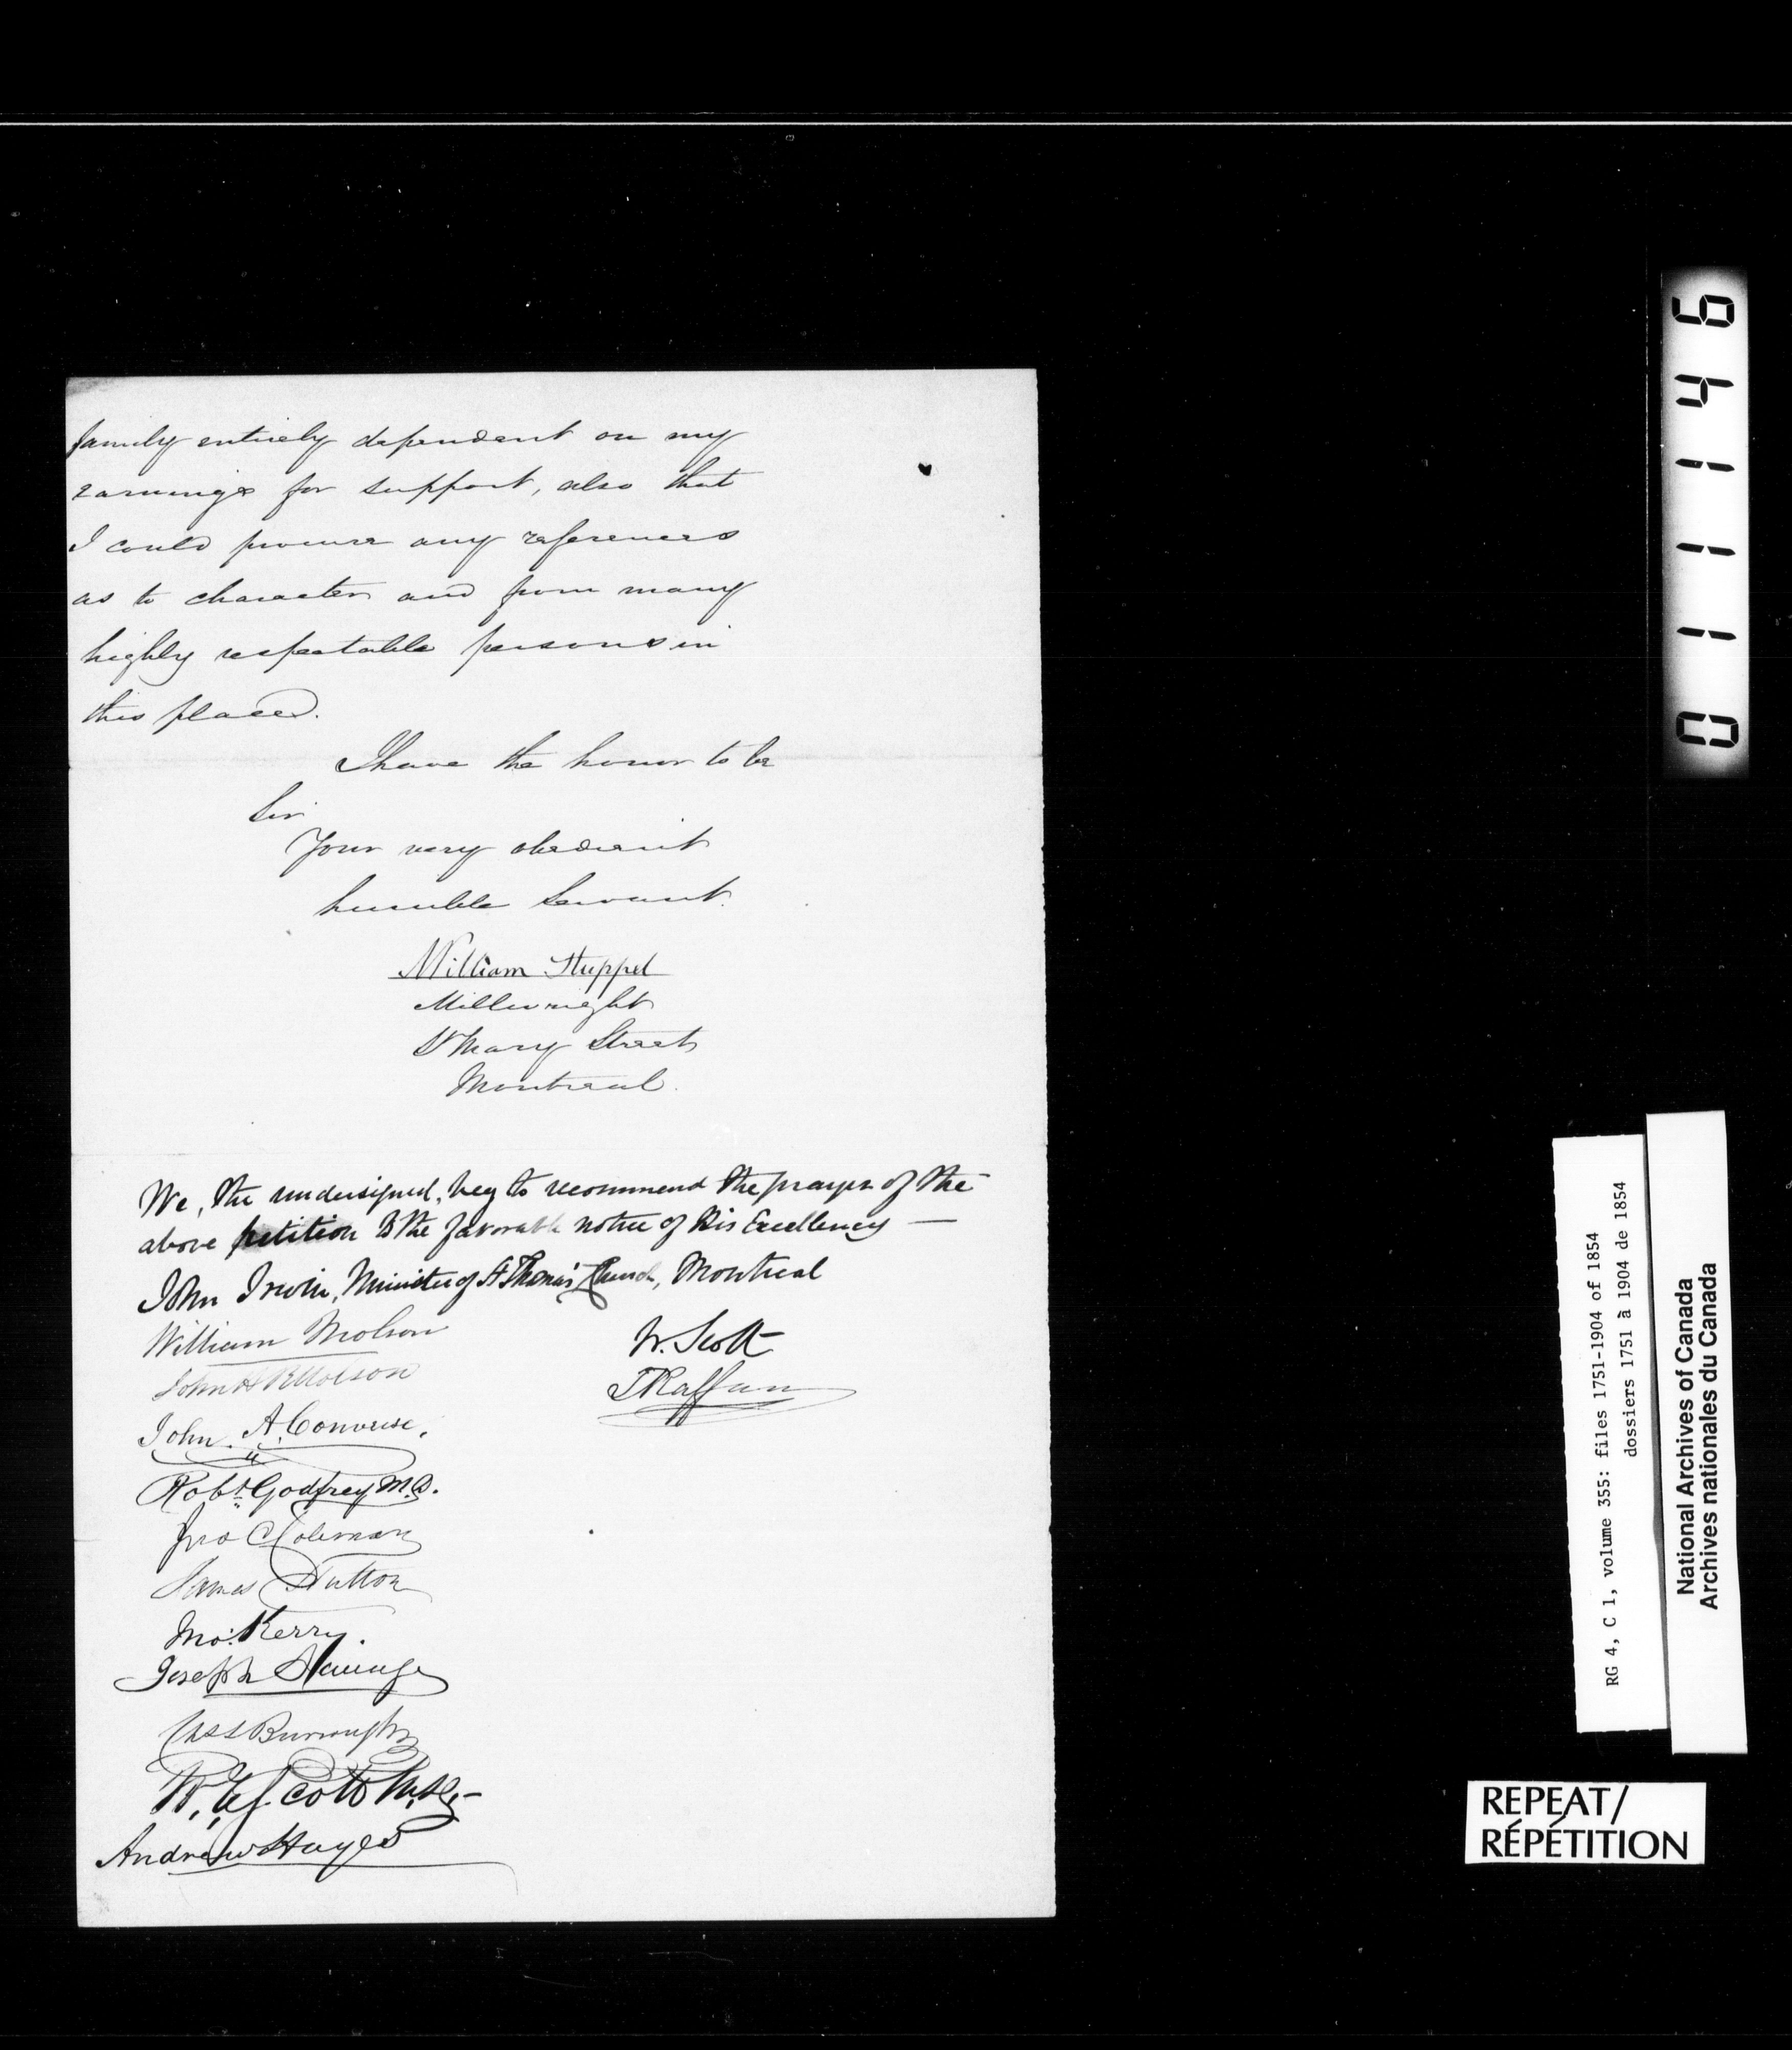 family entirely dependent on my
earnings for support, also that
I could procure any references
as to character and from many
highly respectable persons in
this place.
I have the honor to be
Sir
Your very obedient
humble Servant.
William Huppel
Millwright
St Mary Street
Montreal.
We, the undersigned, beg to recommend the prayer of the
above petition to the favorable notice of His Excellency —
John Irwin, Minister of St Thomas' Church, Montreal
William Molson
W. Scott
John H R Molson
John A. Converse.
Robt Godfrey M.D.
Jno C Coleman
James Hutton
Jno. Kerry.
Joseph
Chs S Burroughs
W. Scott
Andrew Hayes
011146
RG 4, C 1, volume 355: files 1751-1904 of 1854
dossiers 1751 à 1904 de 1854
National Archives of Canada
Archives nationales du Canada
REPEAT/
RÉPÉTITION